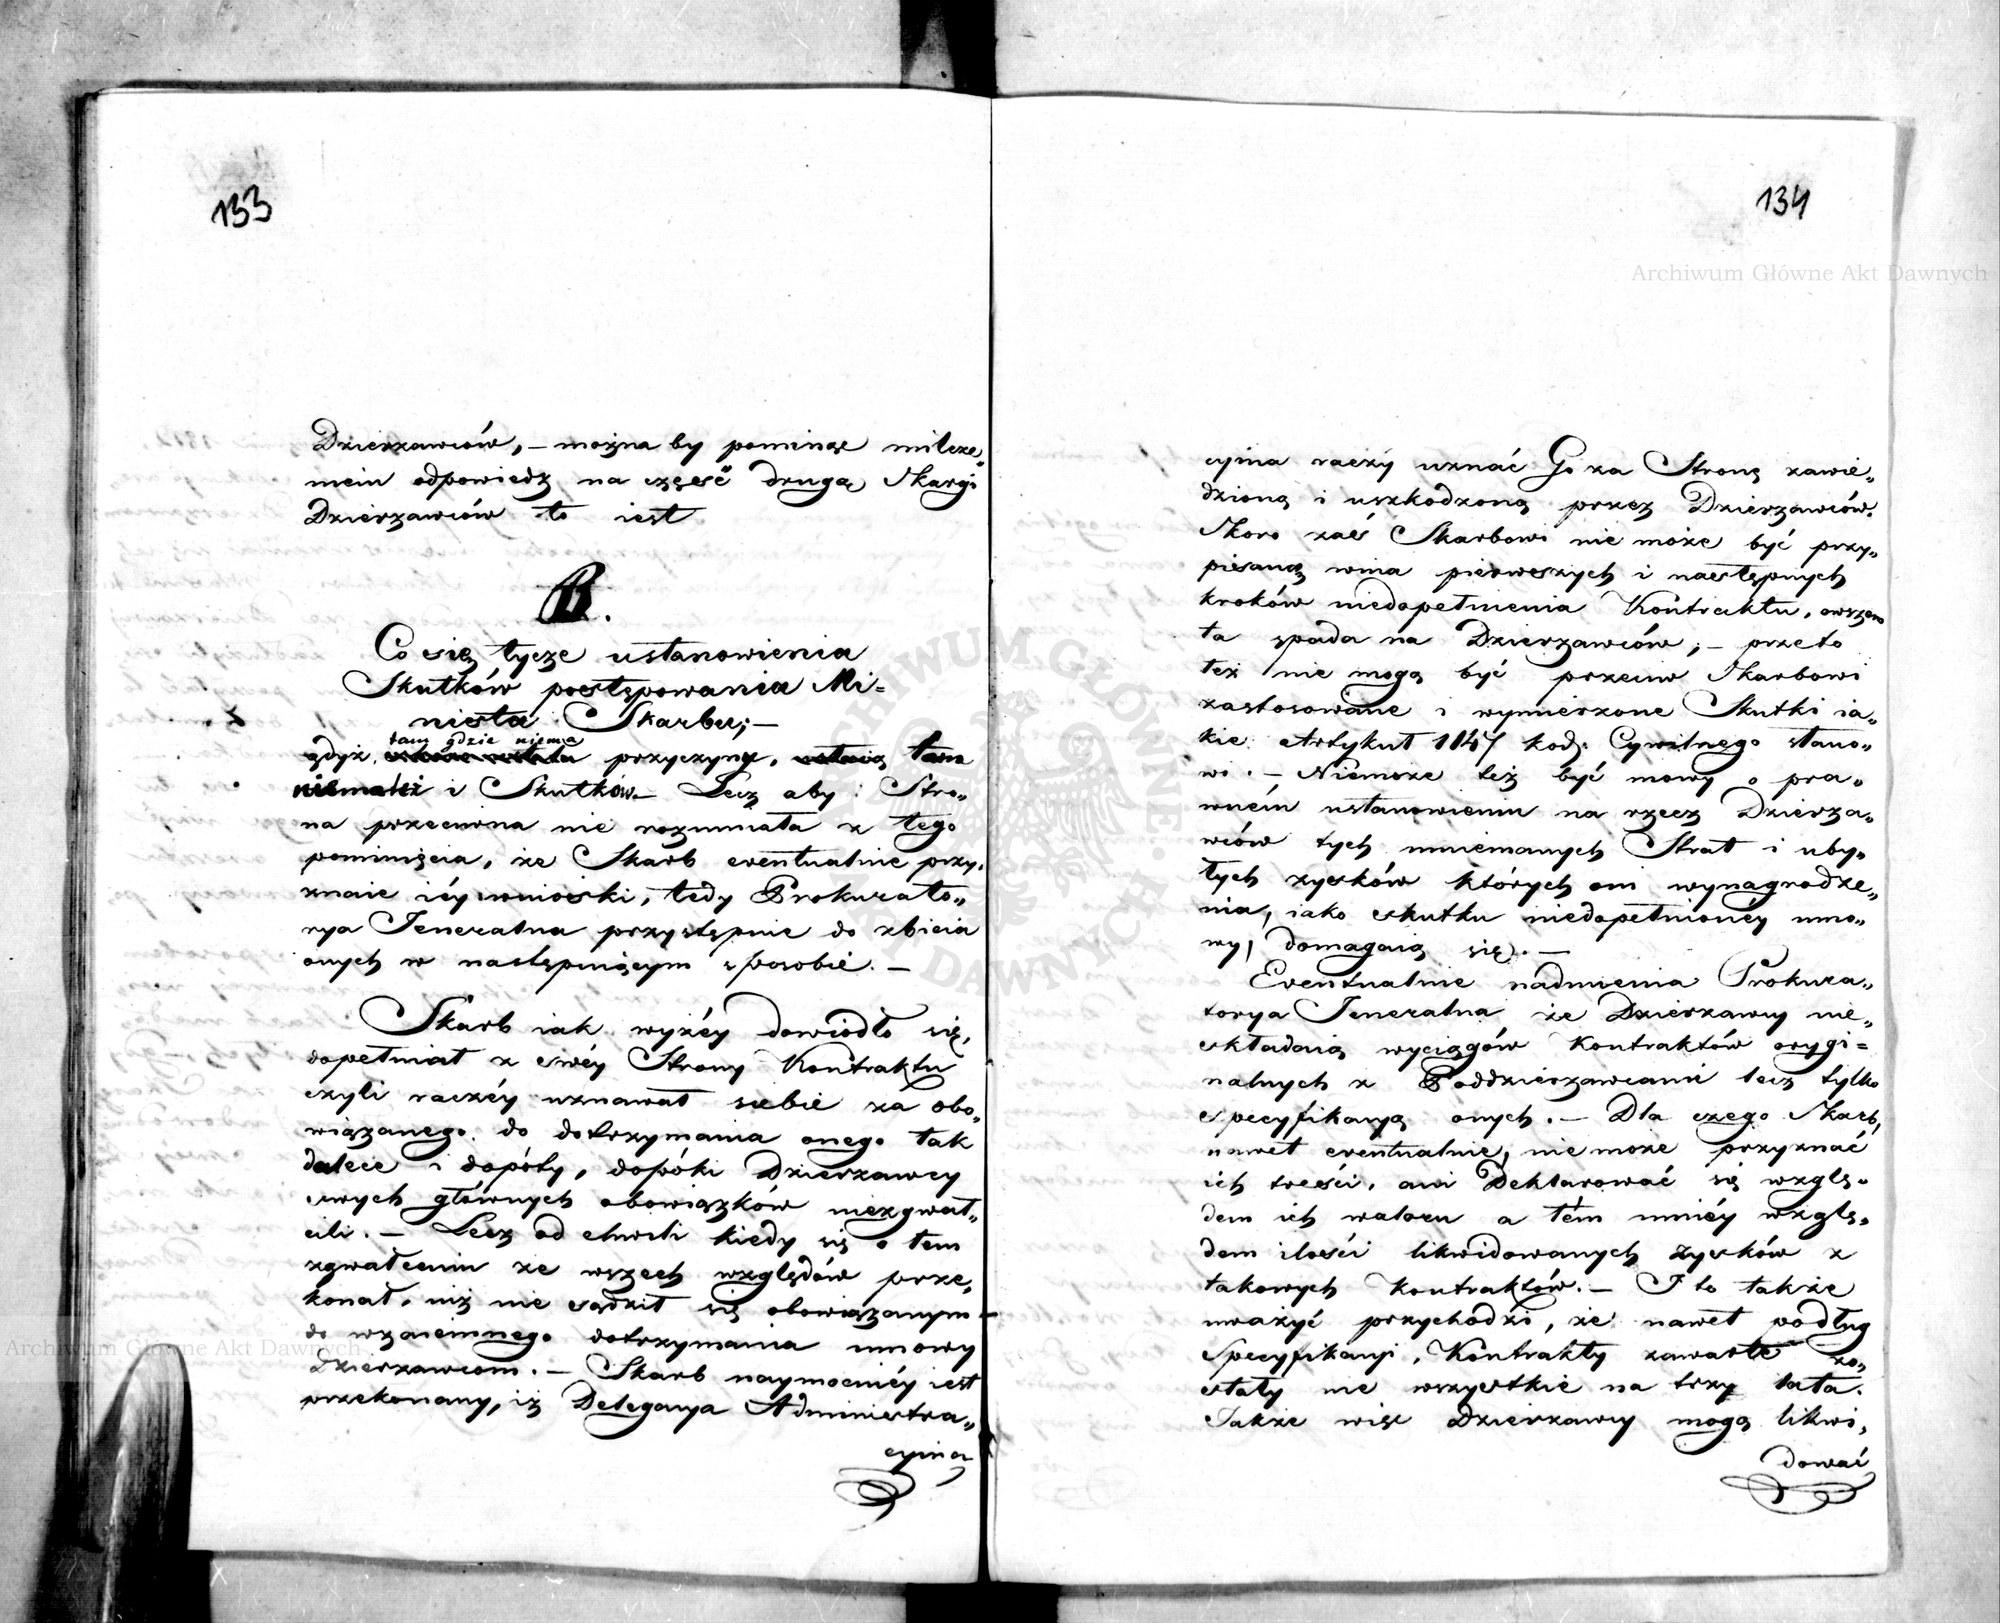 133
Dzierzawców, – można by pominąć milcze„
niem odpowiedz na część drugą Skargi
Dzierzawców to iest
B.
Co się tycze ustanowienia
Skutków postępowania Mi=
nistra Skarbu; –
tam gdzie niema
gdyż przyczyny, tam
niemasz i Skutków – Lecz aby Stro„
na przeciwna nie rozumiała z tego
pominięcia, że Skarb eventualnie przy„
znaie iéy wnioski, tedy Prokurato„
rya Jeneralna przystępuie do zbicia
onych w następuiącym sposobie. –
Skarb iak wyżéy dowiodło się,
dopełniał z swéy Strony Kontraktu
czyli raczéy uznawał siebie za obo„
wiązanego do dotrzymania onego tak
dalece i dopóty, dopóki Dzierzawcy
swych głównych obowiązków niezgwał„
cili. – Lecz od chwili kiedy się o tem
zgwałceniu ze wszech względów prze„
konał, niż nie sądził się obowiązanym –
do wzaiemnego dotrzymania umowy
Dzierzawcom. – Skarb naymocniéy iest
przekonany, iż Delegacya Administra„
cyina
134
cyina raczy uznać Go za Stronę zawie„
dzioną i uszkodzoną przez Dzierzawców.
Skoro zaś Skarbowi nie może być przy„
pisaną wina pierwszych i następnych
kroków niedopełnienia Kontraktu, owszem
ta spada na Dzierzawców; – przeto
też nie mogą być przeciw Skarbowi
zastosowane i wymierzone Skutki ia„
kie Artykuł 1147 kod: Cywilnego stano„
wi. – Niemoże też być mowy o pra„
wném ustanowieniu na rzecz Dzierza„
wców tych mniemanych Strat i uby„
łych zysków których oni wynagrodze„
nia, iako skutku niedopełnioney umo„
wy, domagaią się. –
Eventualnie nadmienia Prokura„
torya Jeneralna że Dzierzawcy nie„
składaią wyciągów Kontraktów orygi=
nalnych z Poddzierzawcami lecz tylko
specyfikacyą onych. – Dla czego Skarb,
nawet eventualnie, nie może przyznać
ich treści, ani Deklarować się wzglę„
dem ich waloru a tém mniéy wzglę„
dem ilości likwidowanych zysków z
takowych Kontraktów. – I to także
uważyć przychodzi, że nawet podług
Specyfikacyi, Kontrakty zawarte zo„
stały nie wszystkie na trzy lata.
Jakże więc Dzierzawcy mogą likwi„
dować
Archiwum Główne Akt Dawnych
Archiwum Główne Akt Dawnych
ARCHIWUM GŁÓWNE AKT DAWNYCH